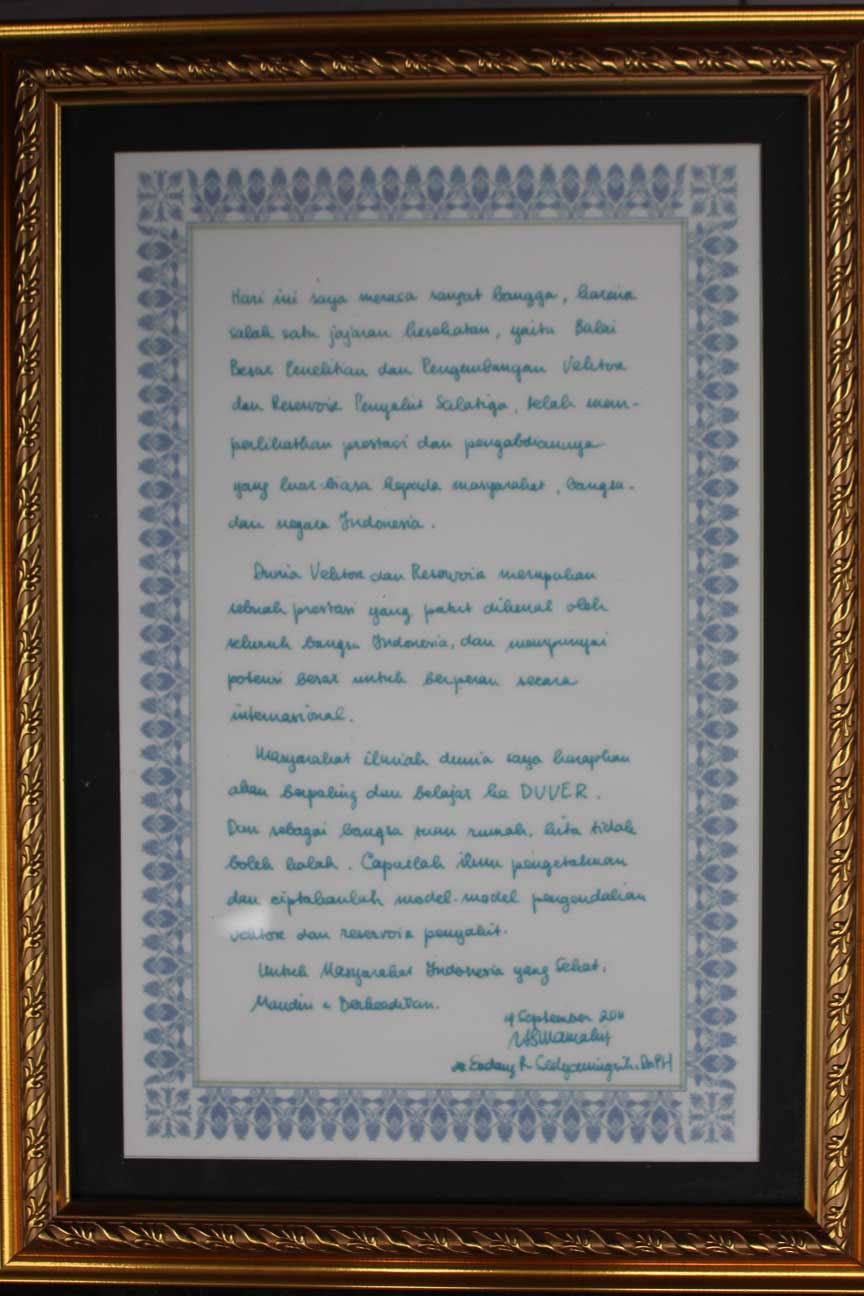 Hari ini saya merasa sangat bangga, karena
salah satu jajaran kesehatan, yaitu Balai
Besar Penelitian dan Pengembangan Vektor
dan Reservoir Penyakit Salatiga, telah mem-
perlihatkan prestasi dan pengabdiannya
yang luar-biasa kepada masyarakat, bangsa
dan negara Indonesia.
Dunia Vektor dan Reservoir merupakan
sebuah prestasi yang patut dikenal oleh
seluruh bangsa Indonesia, dan mempunyai
potensi besar untuk berperan secara
internasional.
Masyarakat ilmiah dunia saya harapkan
akan berpaling dan belajar ke DUVER.
Dan sebagai bangsa tuan rumah, kita tidak
boleh kalah. Capailah ilmu pengetahuan
dan ciptakanlah model-model pengendalian
vektor dan reservoir penyakit.
Untuk Masyarakat Indonesia yang Sehat,
Mandiri & Berkeadilan.
September 2011
Endang R. Sedyaningsih, DrPH